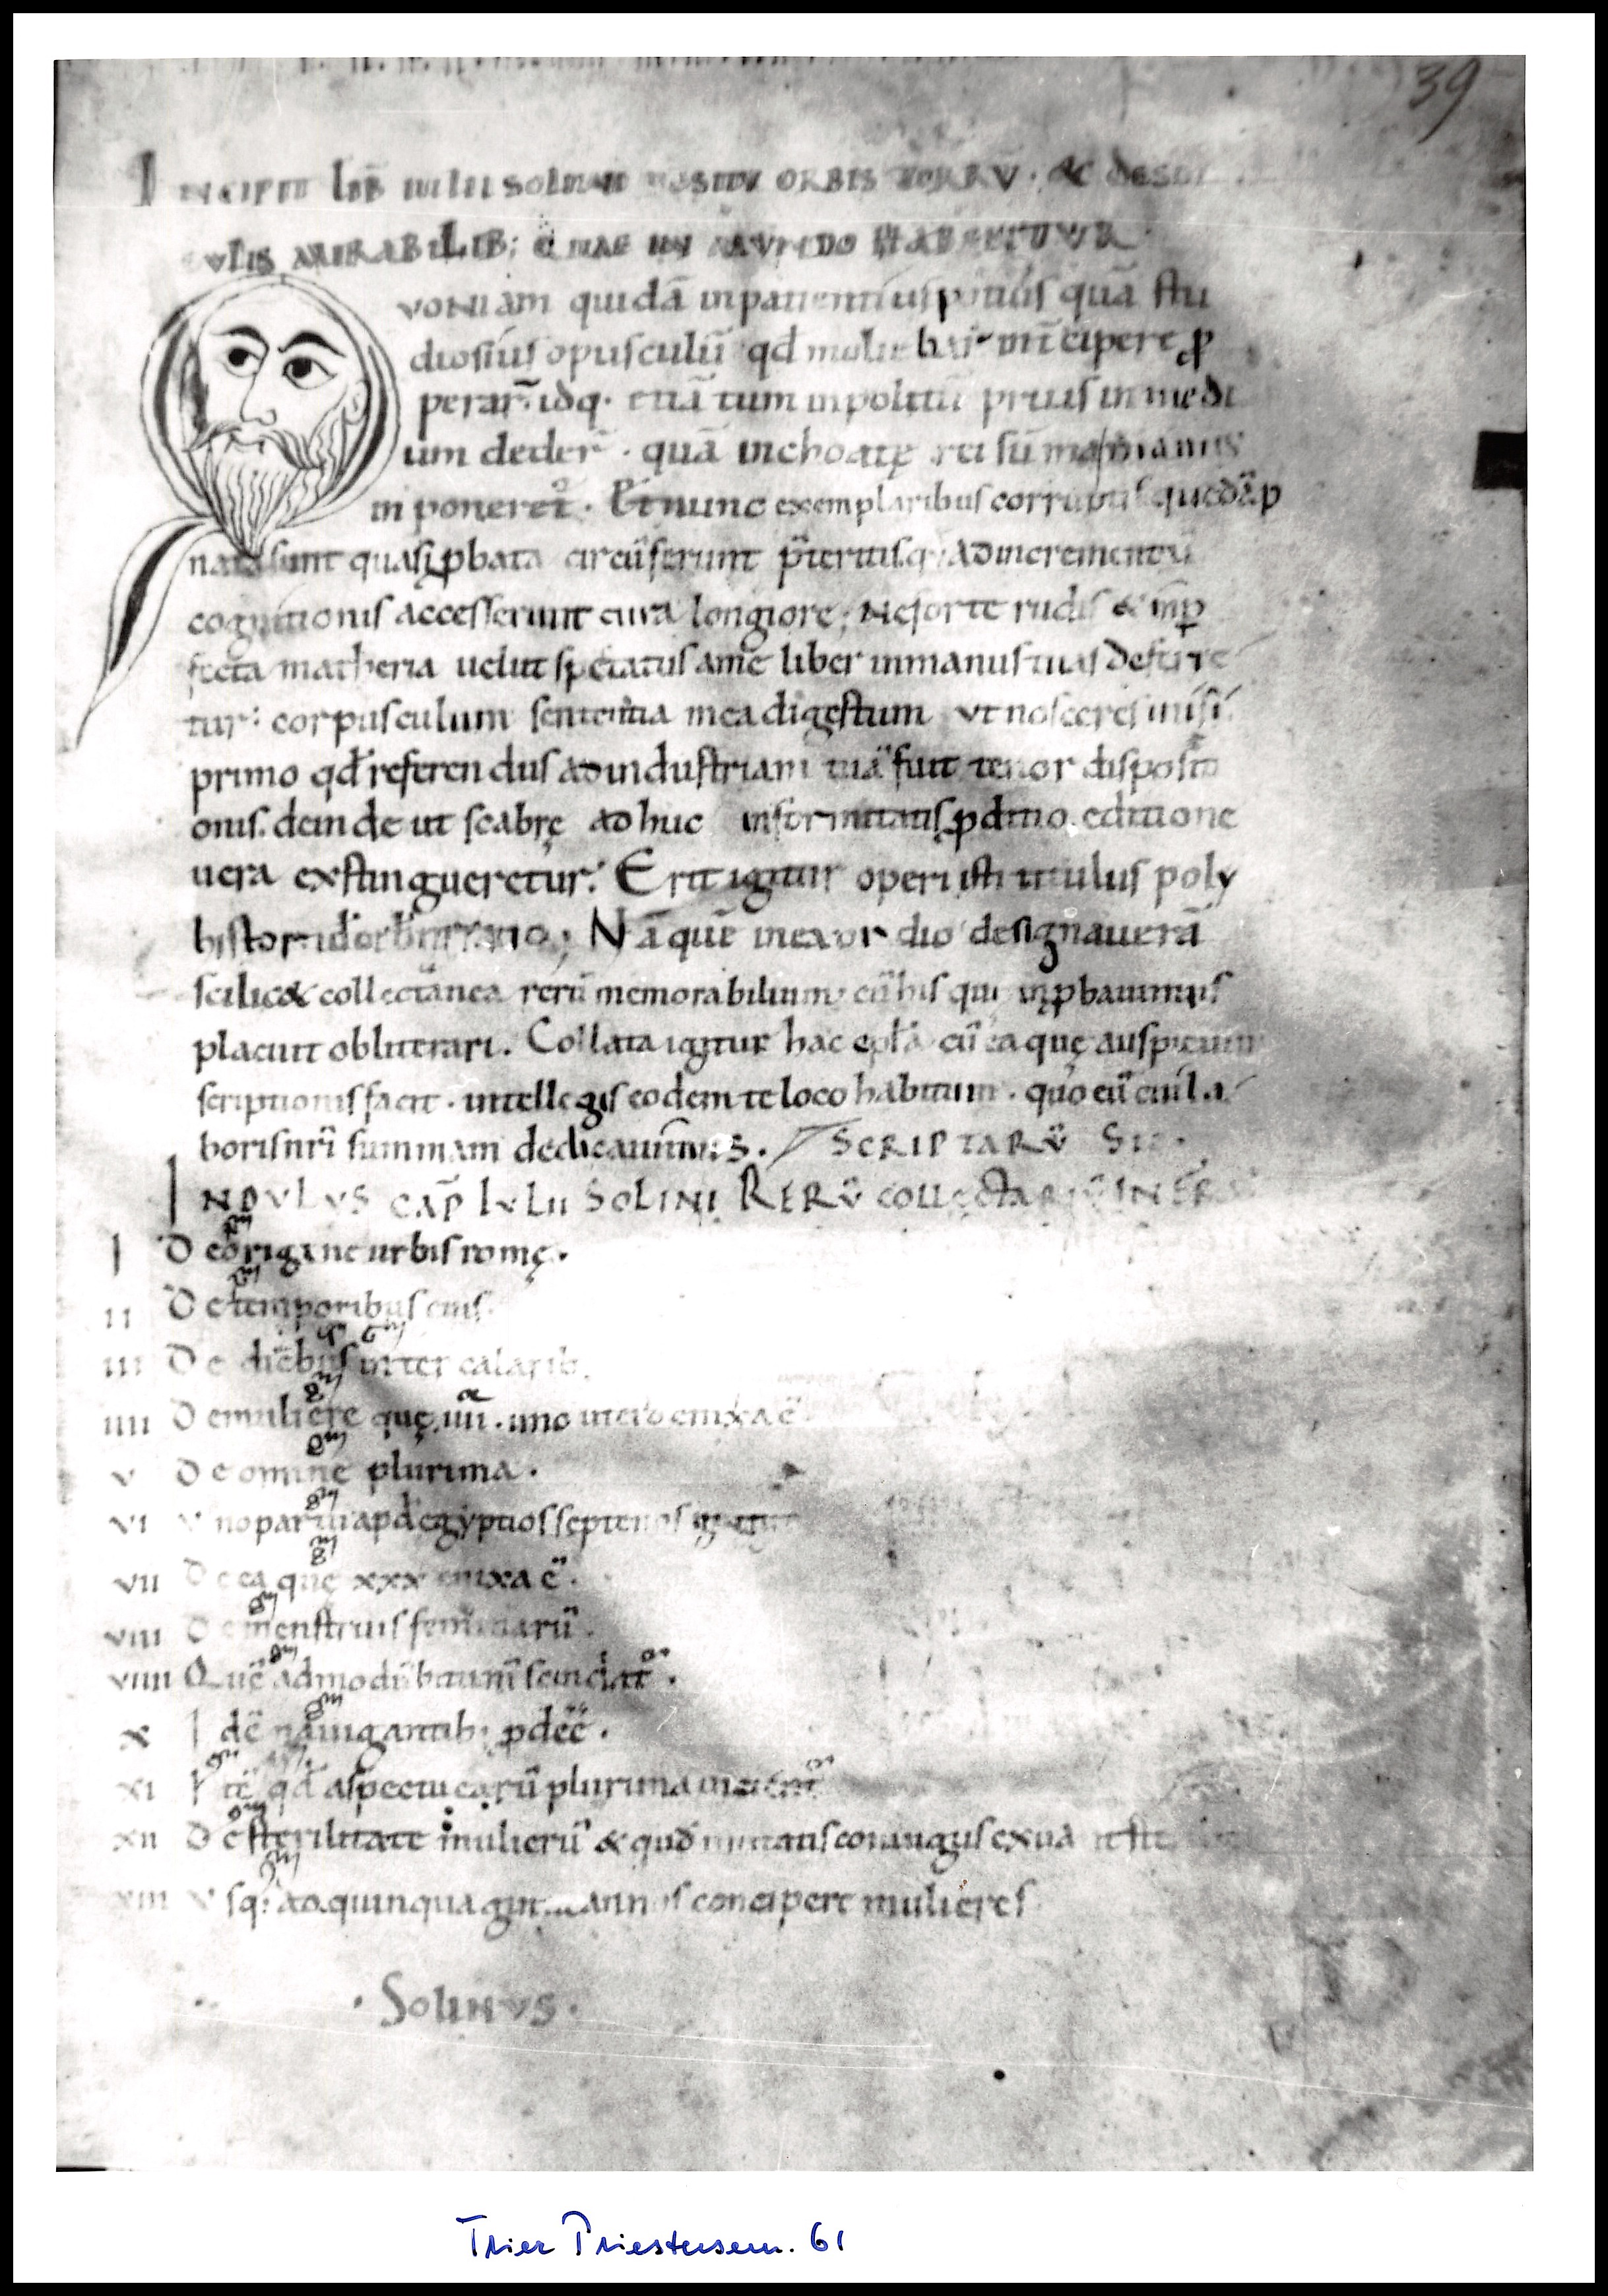 39
INCIPIT LIB IULII SOLINI DE SITU ORBIS TERRARŪ · & DE SIN
GULIS MIRABILIB; QUAE IN MUNDO HABENTUR
VONIAM quidā inpatientius potius quā stu
diosius opusculū qđ molie bar int̄cipere ꝓ
perar̄ idq· etiā tum inpolitū prius in medi
um deder̄ · quā inchoatę rei sūma manus
in poneret̄ · Et nunc exemplaribus corruptis quę dāp
nata sunt quasi ꝓbata circūferunt p̄teritisq; ad incrementū
cognitionis accesserunt cura longiore; Ne forte rudis & inp̱
fecta matheria uelut spectatus a me liber in manus tuas deferre
tur: corpusculum sententia mea digestum vt nosceres misi
primo qđ referendus ad industriam tuā fuit tenor dispositi
onis. deinde ut scabrę adhuc informitatis ꝓditio editione
uera exstingueretur: Erit igitur operi isti titulus poly
histor
Nā quē in exordio designauerā
scilic& collectanea rerū memorabilium cū his quę inꝓbauimus
placuit oblitterari. Collata igitur hac epl̄a cū ea quę auspicium
scriptionis facit · intellegis eodem te loco habitum · quo eū cui la
boris nr̄i summam dedicauimus. SCRIPTARŪ
INDVLVS CAP̄ IVLII SOLINI RERŪ COLLECTARŪ
I De origine urbis romę.
II De temporibus eius.
III De diebus intercalarib;
IIII De muliere quę .IIII. uno utero enixa ē
V De omine plurima.
VI Vno partu apđ egyptios septenos
VII De ea quę XXX enixa ē.
VIII De menstruis feminarū.
VIIII Quē admodū bitumē scindat̄.
X Idē nauigantib; pdēē.
XI Itē qđ aspectu earū plurima uitient̄
XII De sterilitate mulierū & quod mutatis coniugiis exua
XIII Vsq; ad quinquaginta annos concipere mulieres
· SOLINVS ·
Trier Priestersem. 61